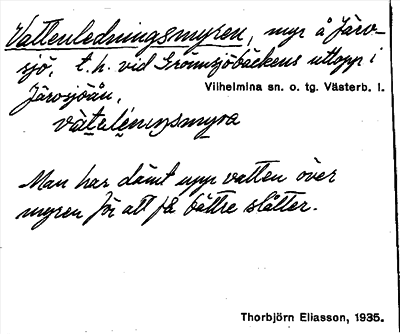 Vattenledningsmyren, myr å Järv-
sjö, t.h. vid Grönmsjöbäckens utlopp i
Järvsjöån.
Vilhelmina sn. o. tg. Västerb. l.
vàtəlèniŋsmyra
Man har dämt upp vatten över
myren för att få bättre slåtter.
Thorbjörn Eliasson, 1935.